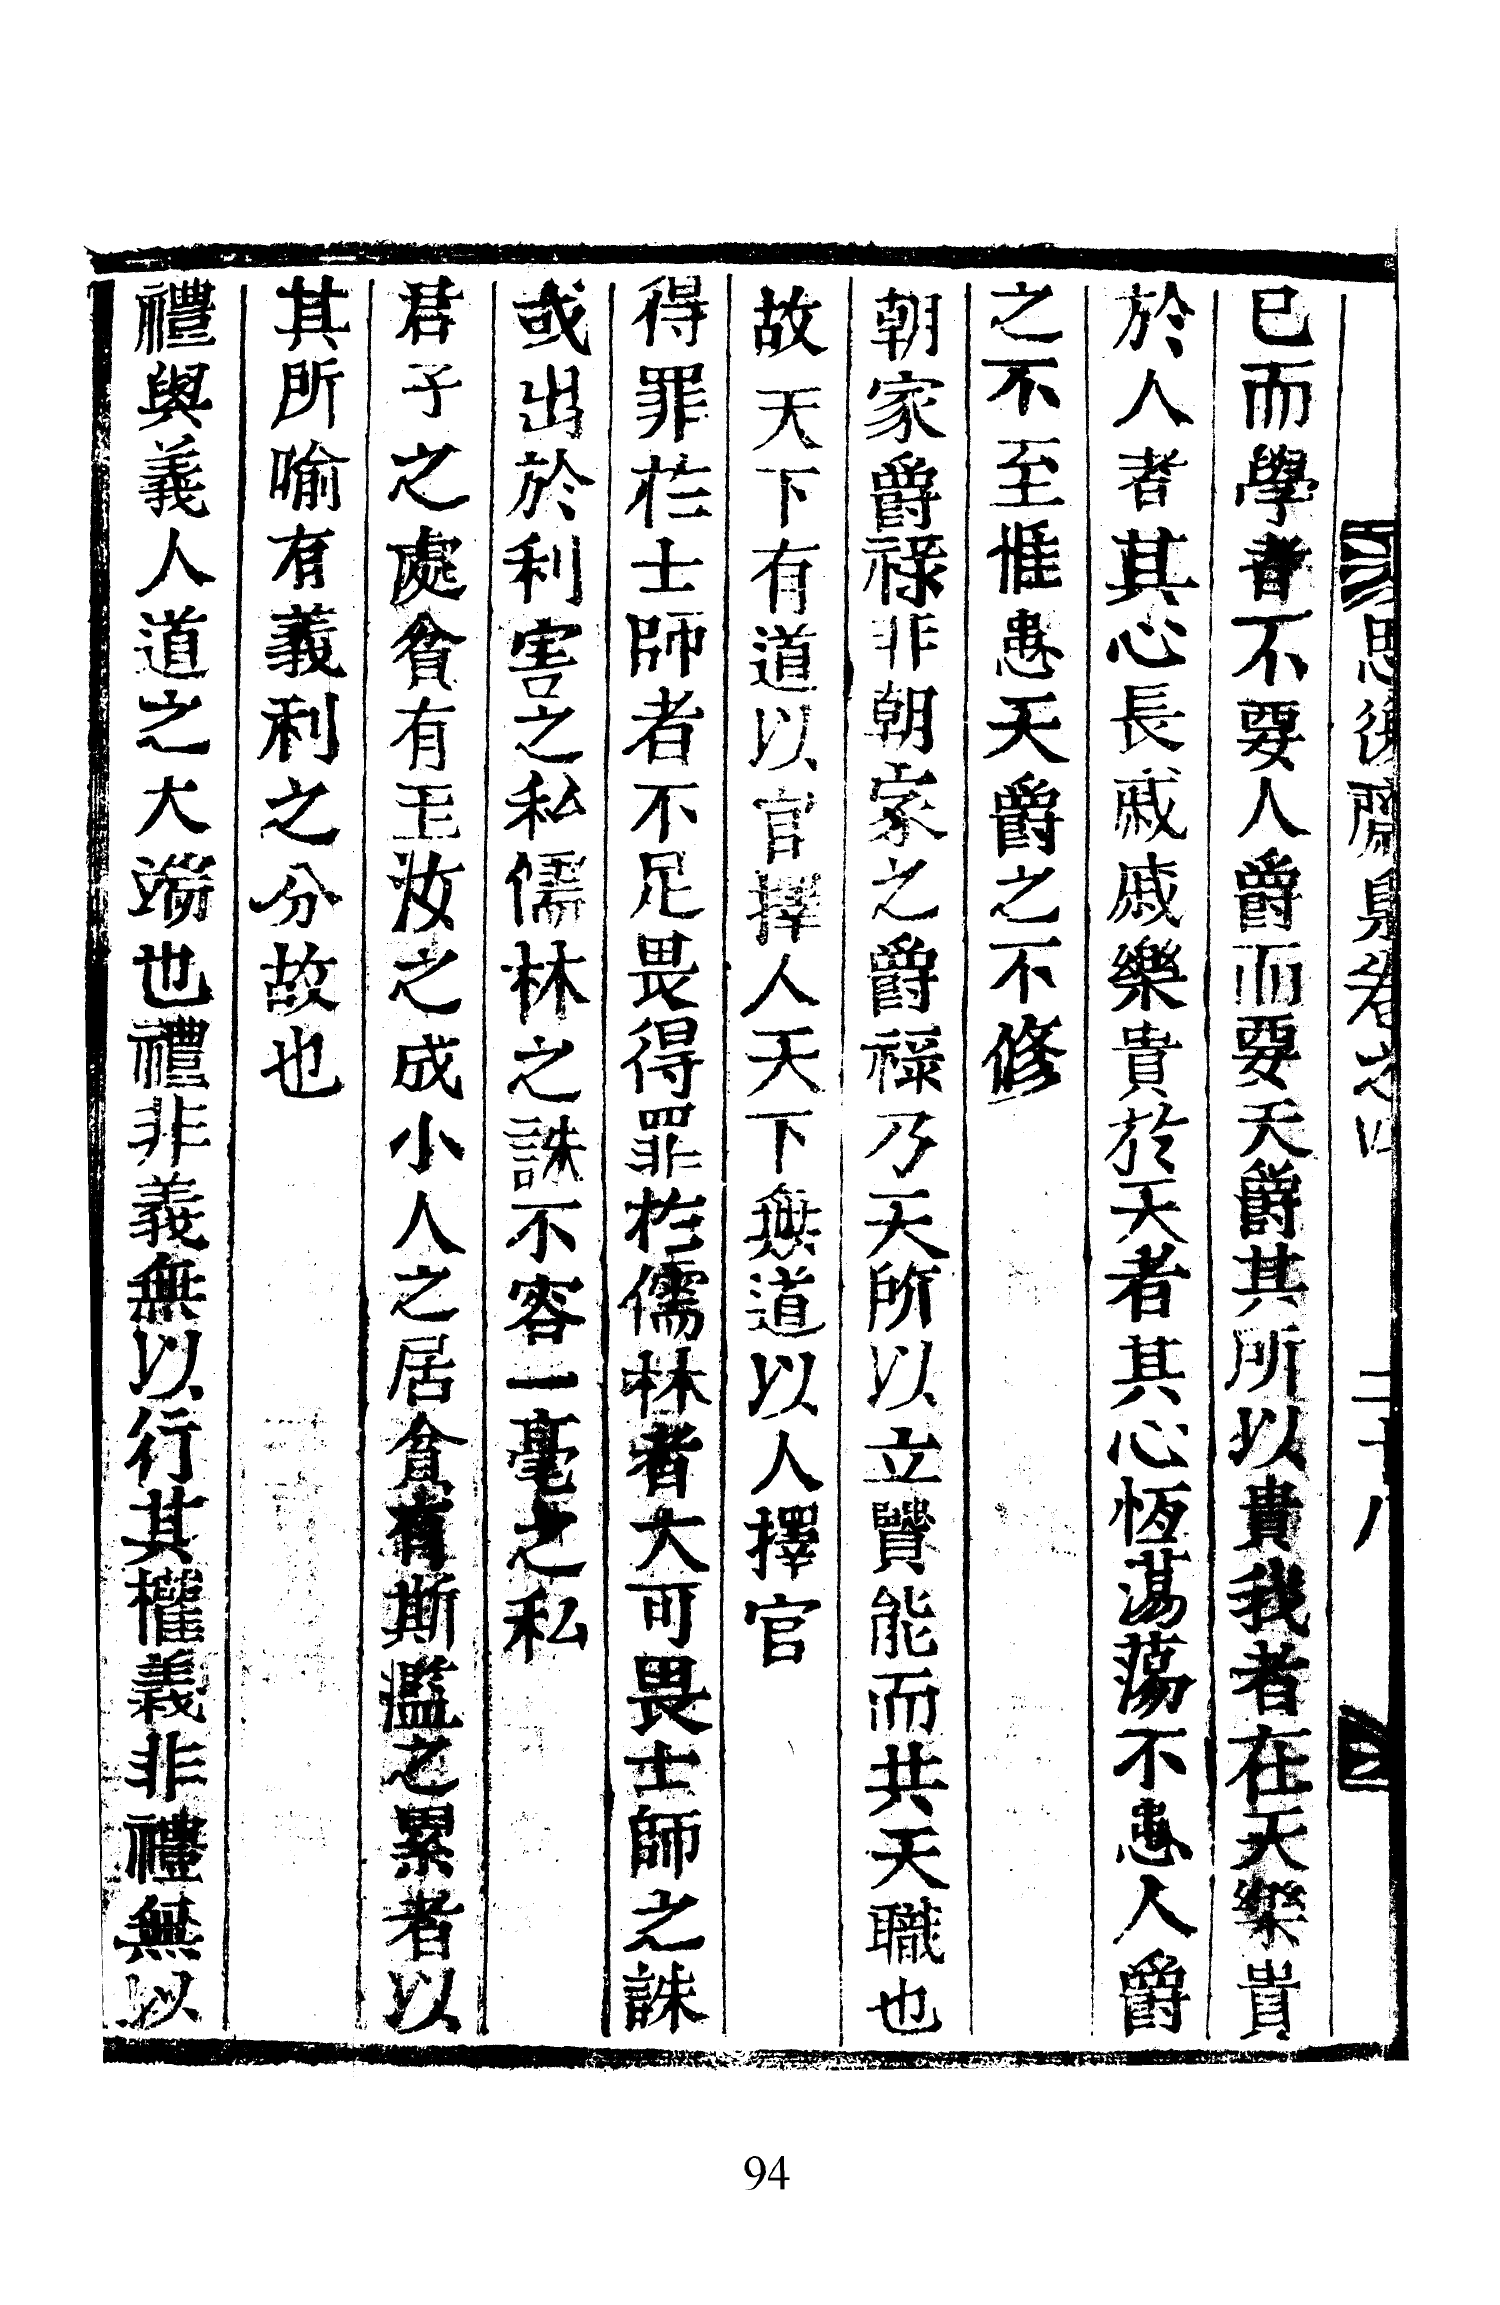 思復齋集卷之四 二十八
已而學者不要人爵而要天爵其所以貴我者在天樂貴
於人者其心長戚戚樂貴於天者其心恆蕩蕩不患人爵
之不至惟患天爵之不修
朝家爵祿非朝家之爵祿乃天所以立賢能而共天職也
故天下有道以官擇人天下無道以人擇官
得罪於士師者不足畏得罪於儒林者大可畏士師之誅
或出於利害之私儒林之誅不容一毫之私
君子之處貧有玉汝之成小人之居貧有斯濫之累者以
其所喻有義利之分故也
禮與義人道之大端也禮非義無以行其權義非禮無以
94